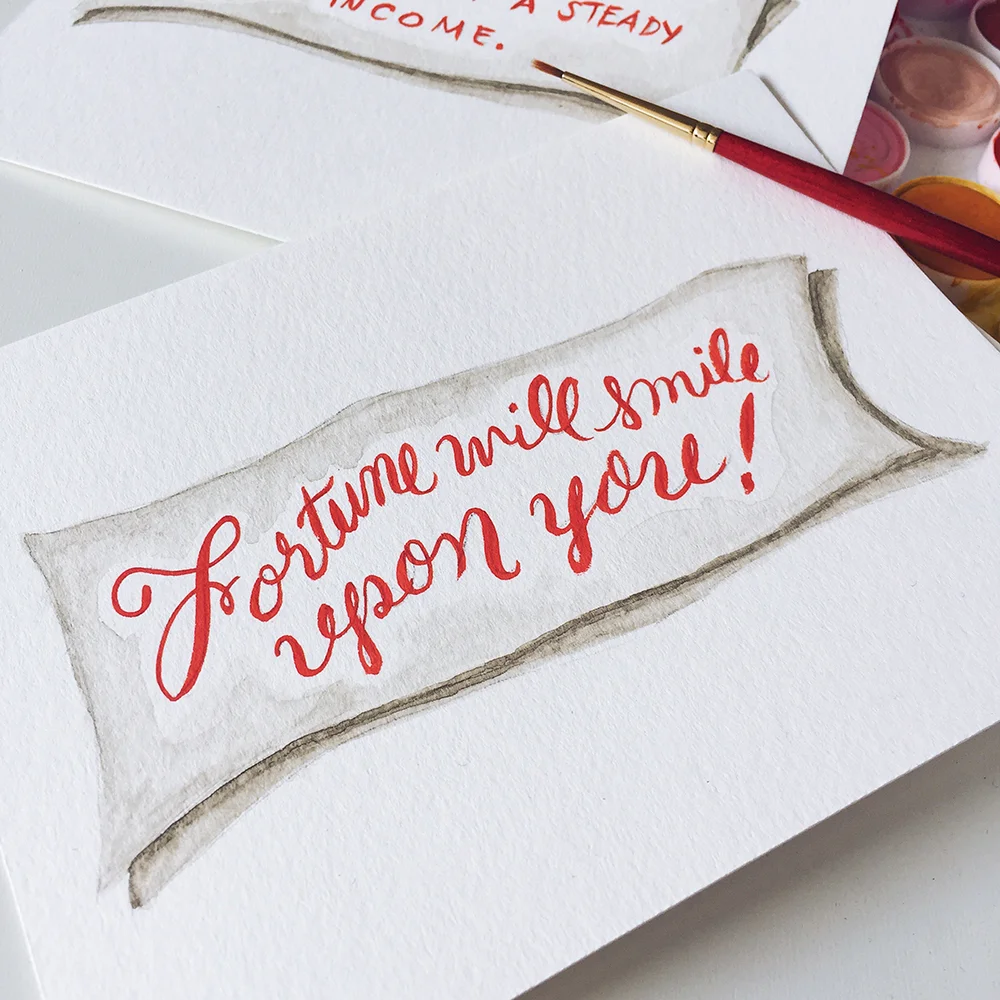 A STEADY
INCOME.
Fortune will smile
upon you!